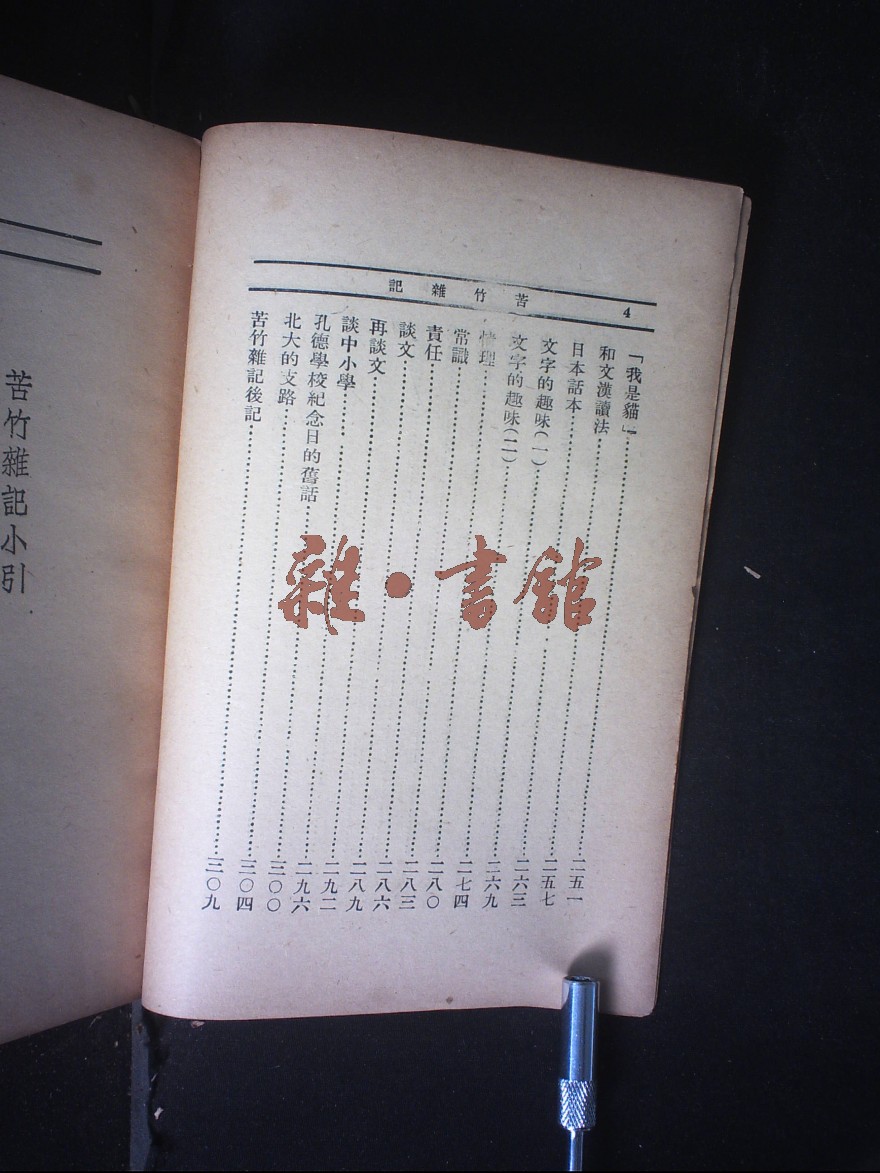 4
苦竹雜記
「我是貓」……二五一
和文漢讀法……二五七
日本話本……二六三
文字的趣味(一)……二六九
文字的趣味(二)……二七四
情理……二八〇
常識……二八三
責任……二八六
談文……二八九
再談文……二九二
談中小學……二九六
孔德學校紀念日的舊話……三〇〇
北大的支路……三〇四
苦竹雜記後記……三〇九
苦竹雜記小引
雜·書館